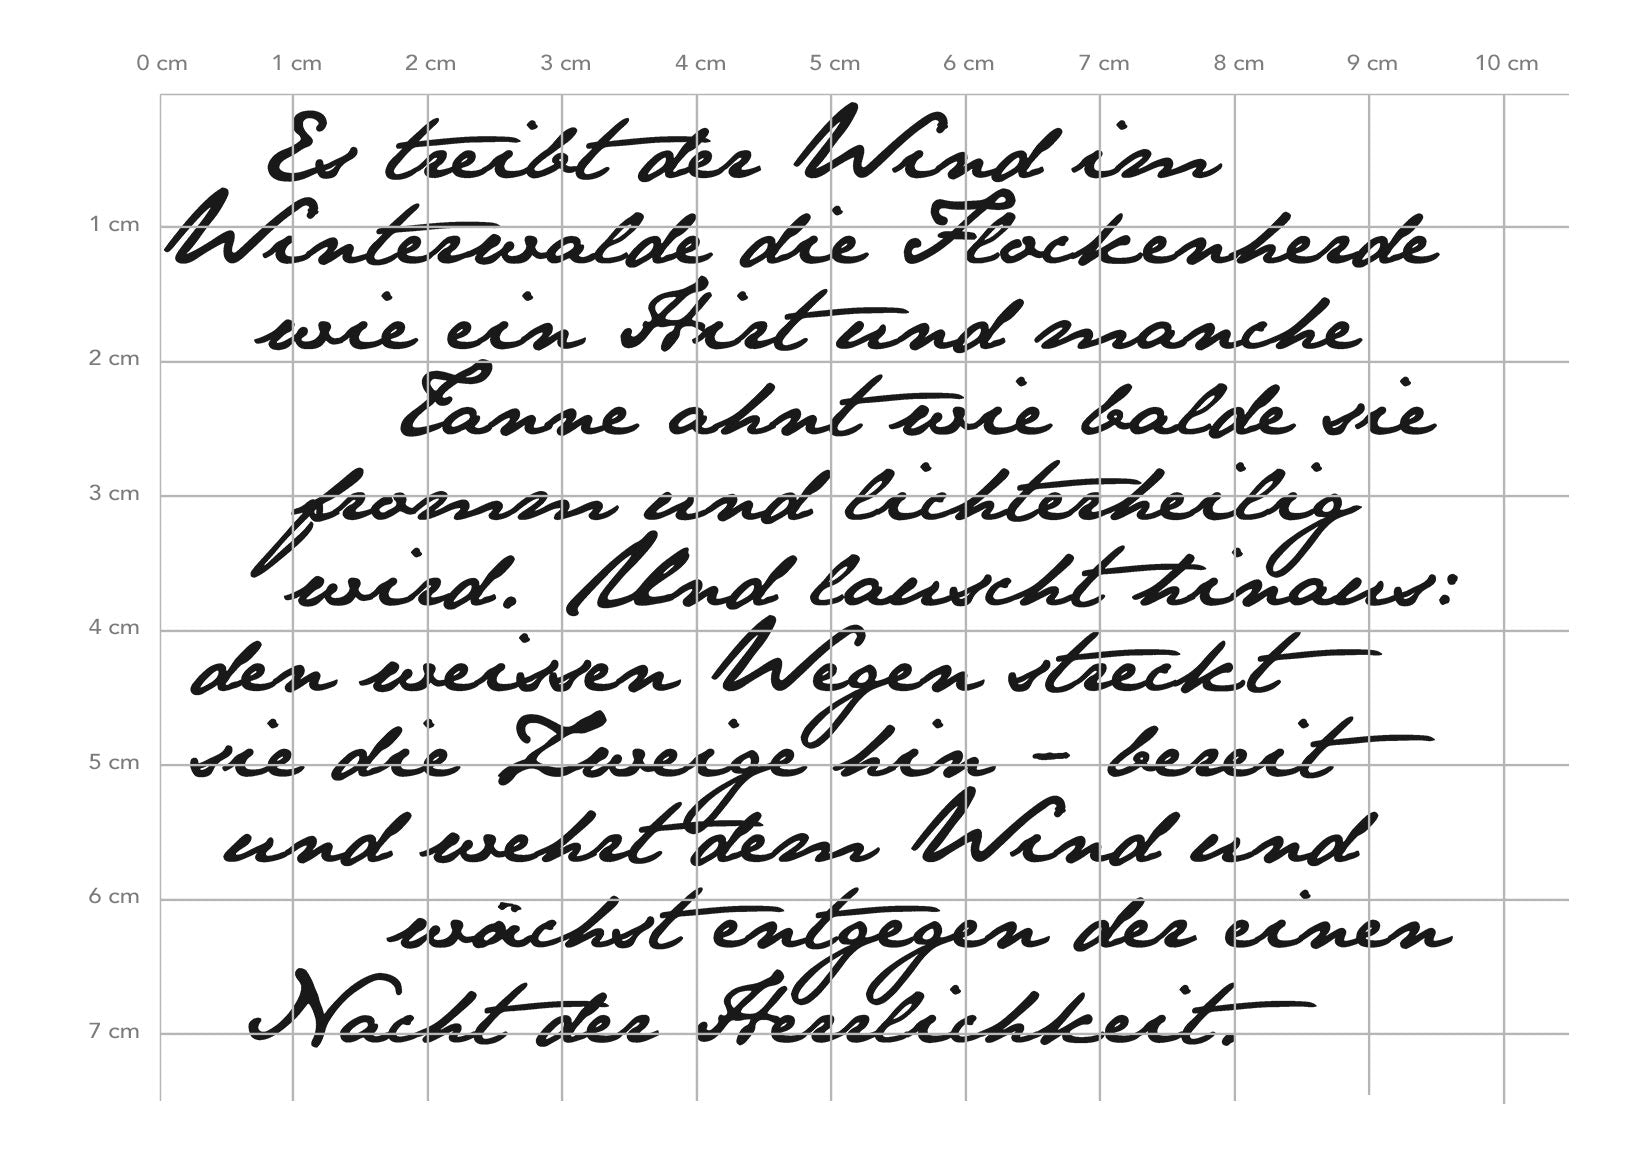 0 cm 1 cm 2 cm 3 cm 4 cm 5 cm 6 cm 7 cm 8 cm 9 cm 10 cm
Es treibt der Wind im
1 cm
Winterwalde die Flockenherde
wie ein Hirt und manche
2 cm
Tanne ahnt wie balde sie
3 cm
fromm und lichterheilig
wird. Und lauscht hinaus:
4 cm
den weissen Wegen streckt
5 cm
sie die Zweige hin - bereit
und wehrt dem Wind und
6 cm
wächst entgegen der einen
7 cm
Nacht der Herrlichkeit.